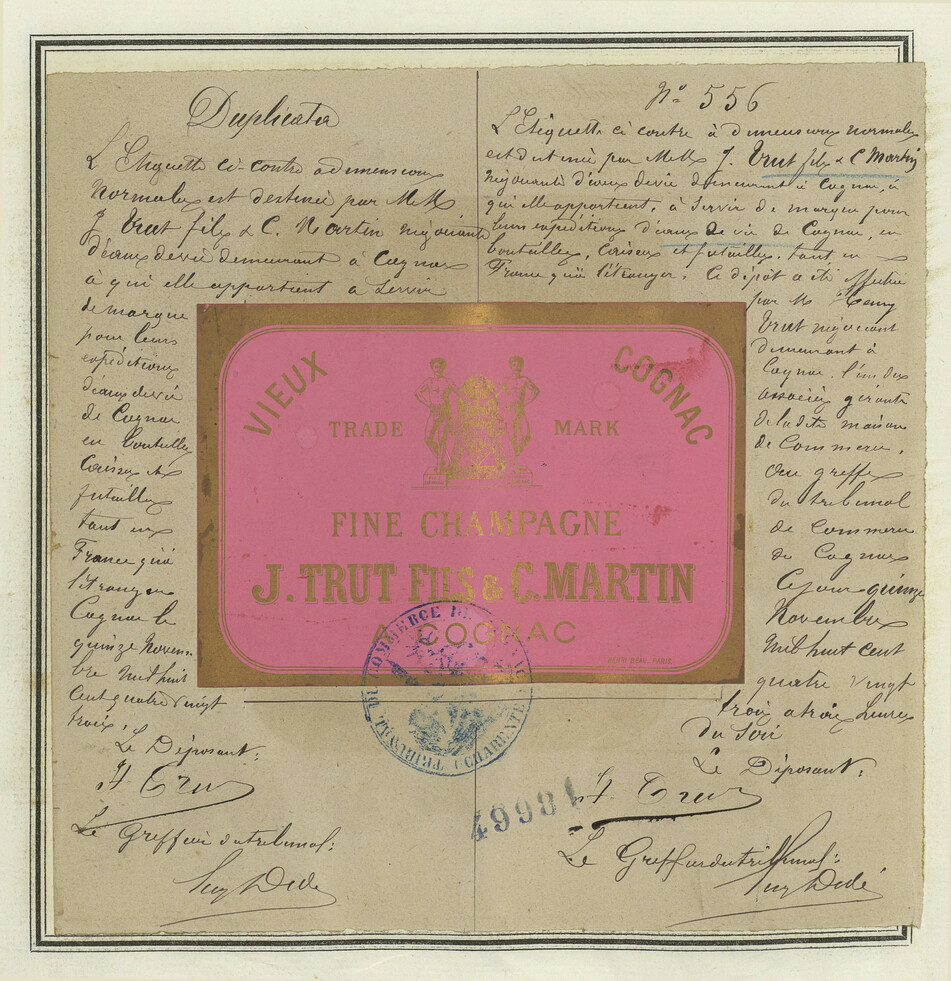 Duplicata
L'Etiquette ci-contre a dimensions
normales est destinée par M.M.
J. Trut fils & C. Martin négociants
d'eaux de vie demeurant à Cognac
à qui elle appartient a servir
de marque
pour leurs
expéditions
d'eaux de vie
de Cognac
en bouteilles
Caisses et
futailles
tant en
France qu'à
l'étranger
Cognac le
quinze Novem-
bre mil huit
cent quatre vingt
trois.
Le Déposant:
H Trut
Le Greffier du tribunal:
N° 556
L'Etiquette ci contre à dimensions normales
est destinée par M.M. J. Trut fils & C Martin
négociants d'eaux de vie demeurant à Cognac, à
qui elle appartient, à servir de marque pour
leurs expéditions d'eaux de vie de Cognac, en
bouteilles, Caisses et futailles, tant en
France qu'à l'étranger. Ce dépôt a été effectué
par M
Trut négociant
demeurant à
Cognac, l'un des
associés gérants
de la dite maison
de Commerce,
au greffe
du tribunal
de Commerce
de Cognac
Ce jour quinze
Novembre
mil huit cent
quatre vingt
trois a trois heures
du Soir
Le Déposant:
H Trut
Le Greffier du tribunal:
VIEUX COGNAC
TRADE MARK
FINE CHAMPAGNE
J. TRUT FILS & C. MARTIN
COGNAC
TRIBUNAL DE COMMERCE DE COGNAC
(CHARENTE)
49981